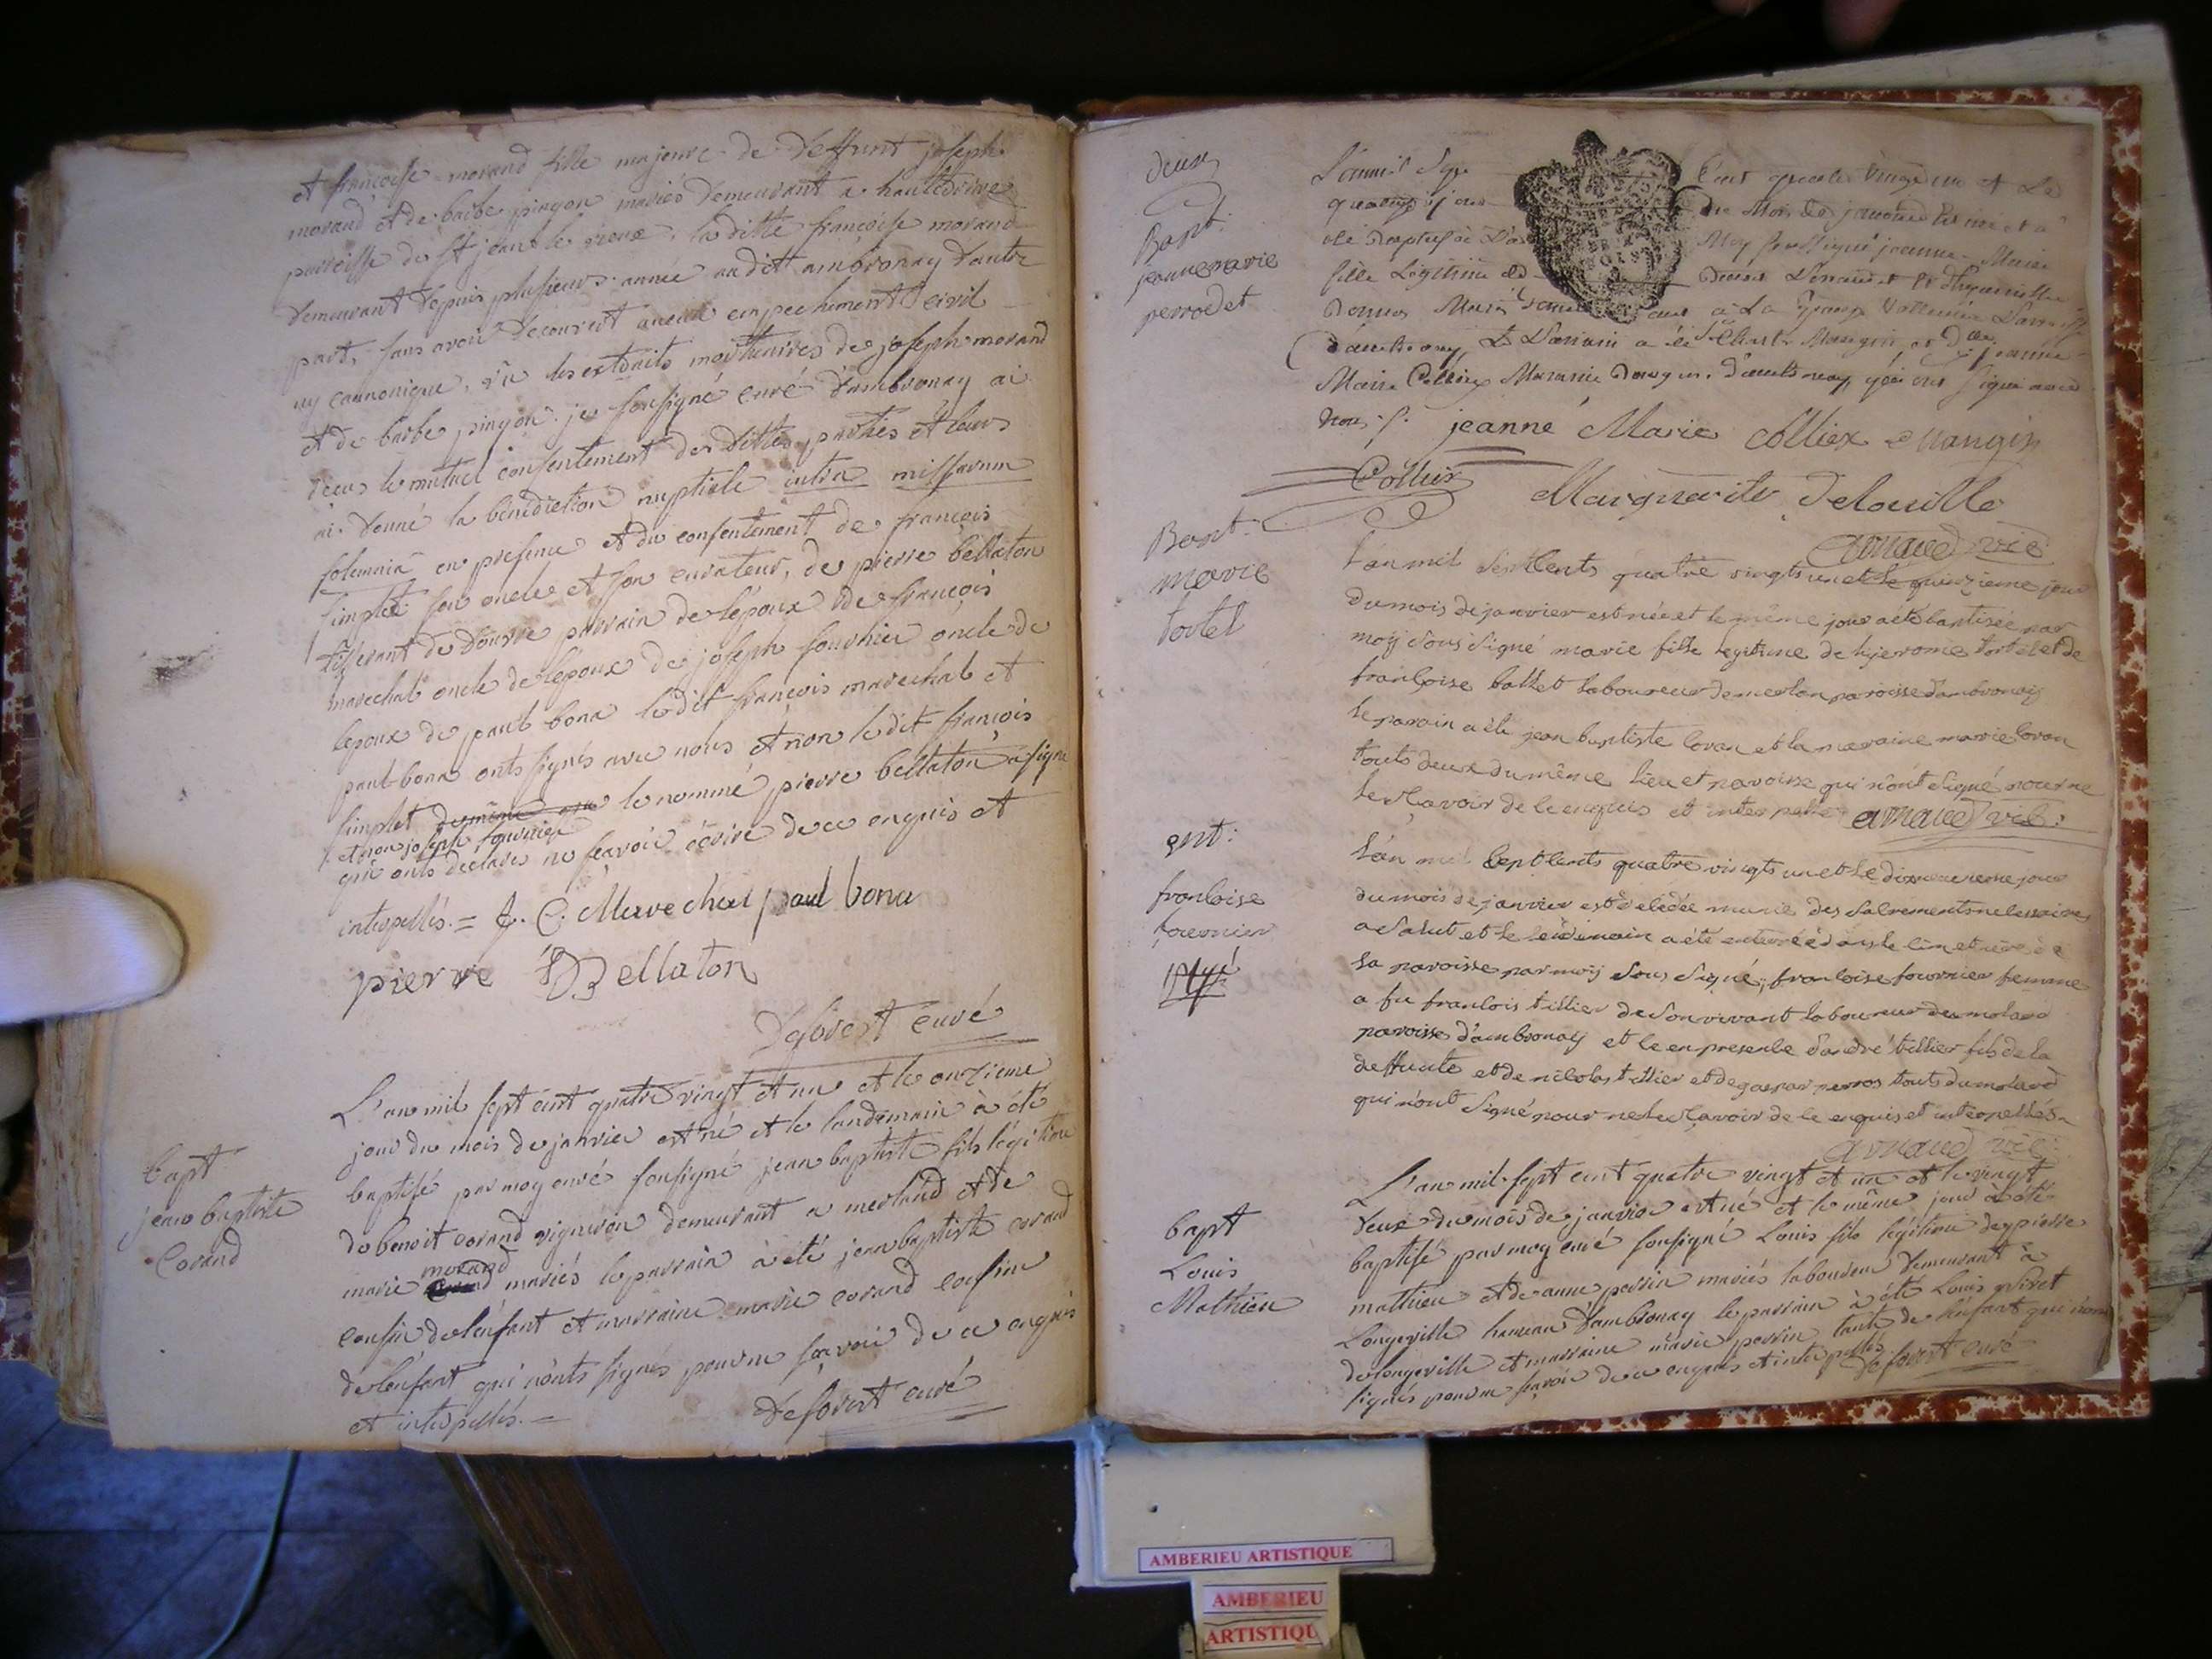 et françoise morand fille majeure de deffunt joseph
morand et de barbe pingon mariés demeurant a hauterive
parroisse de st jean le vieux, la ditte françoise morand
demeurant depuis plusieurs année au dit ambronay d'autre
part, sans avoir decouvert aucun empechement civil
ny cannonique, vû les extraits mortuaires de joseph morand
et de barbe pingon. je sousigné curé d'ambronay ai
reçus le mutuel consentement des dittes parties et leurs
ai donné la bénédiction nuptiale intra missarum
solemnia en presence et du consentement de françois
simplet son oncle et son curateur, de pierre bellaton
tisserant de douvre parrain de l'époux de françois
marechal oncle de l'epoux de joseph fournier oncle de
lepoux de paul bona le dit françois marechal et
paul bona onts signés avec nous et non le dit françois
simplet le nommé pierre bellaton a signé
et non joseph fournier
qui onts declarés ne sçavoir écrire de ce enquis et
interpellés. = f. C. Marechal paul bona
pierre Bellaton
Deforest curé
bapt
jean baptiste
Corand
L'an mil sept cent quatre vingt et un et le onzieme
jour du mois de janvier est né et le landemain à été
baptisé par moy curé sousigné jean baptiste fils légitime
de benoit corand vigneron demeurant a merland et de
morand
marie mariés le parrain à été jean baptiste corand
cousin de l'enfant et marraine marie corand cousine
de l'enfant qui n'onts signés pour ne sçavoir de ce enquis
et interpellés. =
Deforest curé
deux
Bapt:
jeanne marie
perrodet
L'an mil Sept Cent quatre Vingt un et Le
jour du Mois de janvier
été Baptisée Moy soussigné jeanne Marie
fille Légitime de
Marie
d'ambronay, Le Parrain a été Mangin et Dlle jeanne
Marie Colliex Maraine d'ambronay, qui ont signé avec
Nous /. jeanne Marie Colliex Mangin
Colliex
Marguerite Delouille
arnaud vic:
Bapt:
marie
tortel
l'an mil sept Cents quatre vingts un et le quinzieme jour
du mois de janvier est née et le même jour a été baptisée par
moy sous signé marie fille legitime de hyerome tortel et de
françoise ballet laboureur de merlan paroisse d'ambronay
le parain a été jean baptiste Coran et la maraine marie Coran
touts deux du même lieu et paroisse qui n'ont signé pour ne
le sçavoir de ce enquis et interpellés arnaud vic:
ent:
françoise
fournier
l'an mil Sept Cents quatre vingts un et le dixneuvieme jour
du mois de janvier est décédée munie des sacrements necessaires
a salut et le lendemain a été enterrée dans le cimetiere de
la paroisse par moy sous signé; françoise fournier femme
a feu françois tillier de son vivant laboureur du molard
paroisse d'ambronay et ce en presence d'andré tillier fils de la
deffunte et de nicolas tillier et de gaspar perros touts du molard
qui n'ont signé pour ne le sçavoir de ce enquis et interpellés
arnaud vic:
bapt
Louis
Mathieu
L'an mil sept cent quatre vingt et un et le vingt
deux du mois de janvier est né et le même jour à été
baptisé par moy curé sousigné Louis fils légitime de pierre
mathieu et de anne perrin mariés laboureur demeurant à
Longeville hameau d'ambronay le parrain à été Louis
de longeville et marraine marie perrin tante de l'enfant qui n'ont
signés pour ne sçavoir de ce enquis et interpellés deforest curé
AMBERIEU ARTISTIQUE
AMBERIEU
ARTISTIQU